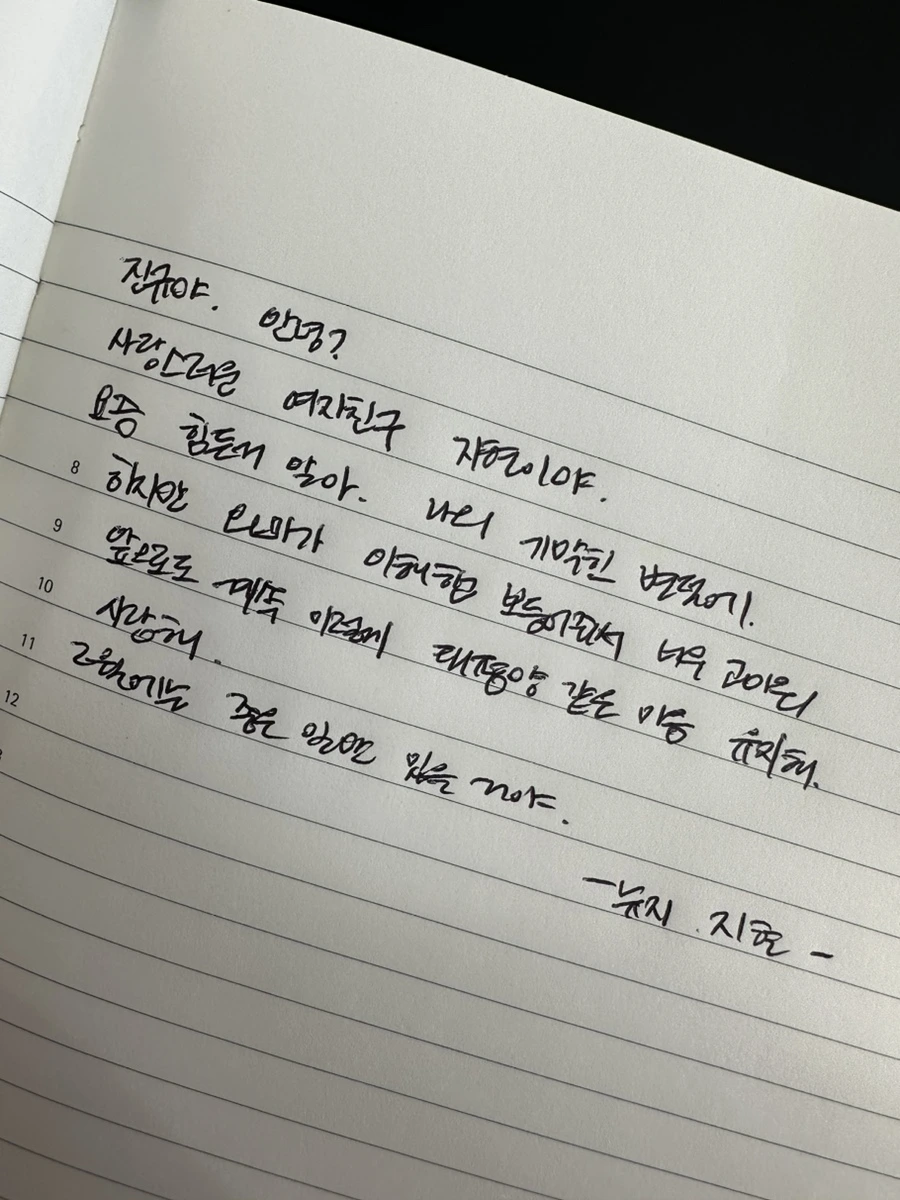 진규야. 안녕?
사랑스러운 여자친구 자연이야.
요즘 힘든거 알아. 나의 기막힌 변덕에.
8 하지만 오빠가 이해해 보듬어줘서 너무 고마워
9 앞으로도 계속 이렇게 태평양 같은 마음 유지해.
10 사랑해.
11 2월에는 좋은 일만 있을 거야.
12
- 뉴지 지현 -